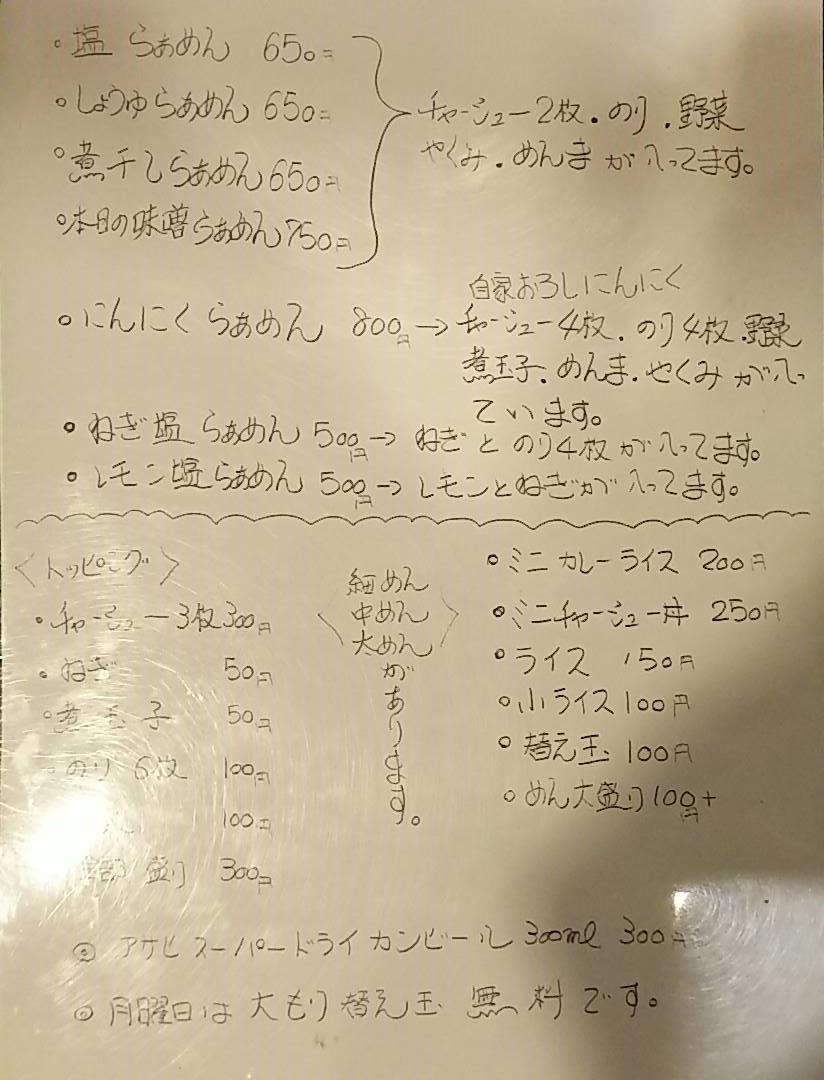 ・塩 らぁめん 650円
・しょうゆらぁめん 650円
・煮干しらぁめん 650円
・本日の味噌らぁめん 750円
チャーシュー2枚.のり.野菜
やくみ.めんまが入ってます。
・にんにく らぁめん 800円→
自家おろしにんにく
チャーシュー4枚.のり4枚.野菜
煮玉子.めんま.やくみが入っ
ています。
・ねぎ塩 らぁめん 500円→ ねぎとのり4枚が入ってます。
・レモン塩らぁめん 500円→ レモンとねぎが入ってます。
〈トッピング〉
・チャーシュー3枚300円
・ねぎ 50円
・煮玉子 50円
・のり6枚 100円
100円
盛り 300円
〈細めん
中めん
太めん〉
があります。
・ミニカレーライス 200円
・ミニチャーシュー丼 250円
・ライス 150円
・小ライス 100円
・替え玉 100円
・めん大盛り 100円+
◎ アサヒスーパードライカンビール 300ml 300円
◎ 月曜日は 大もり替え玉 無料です。